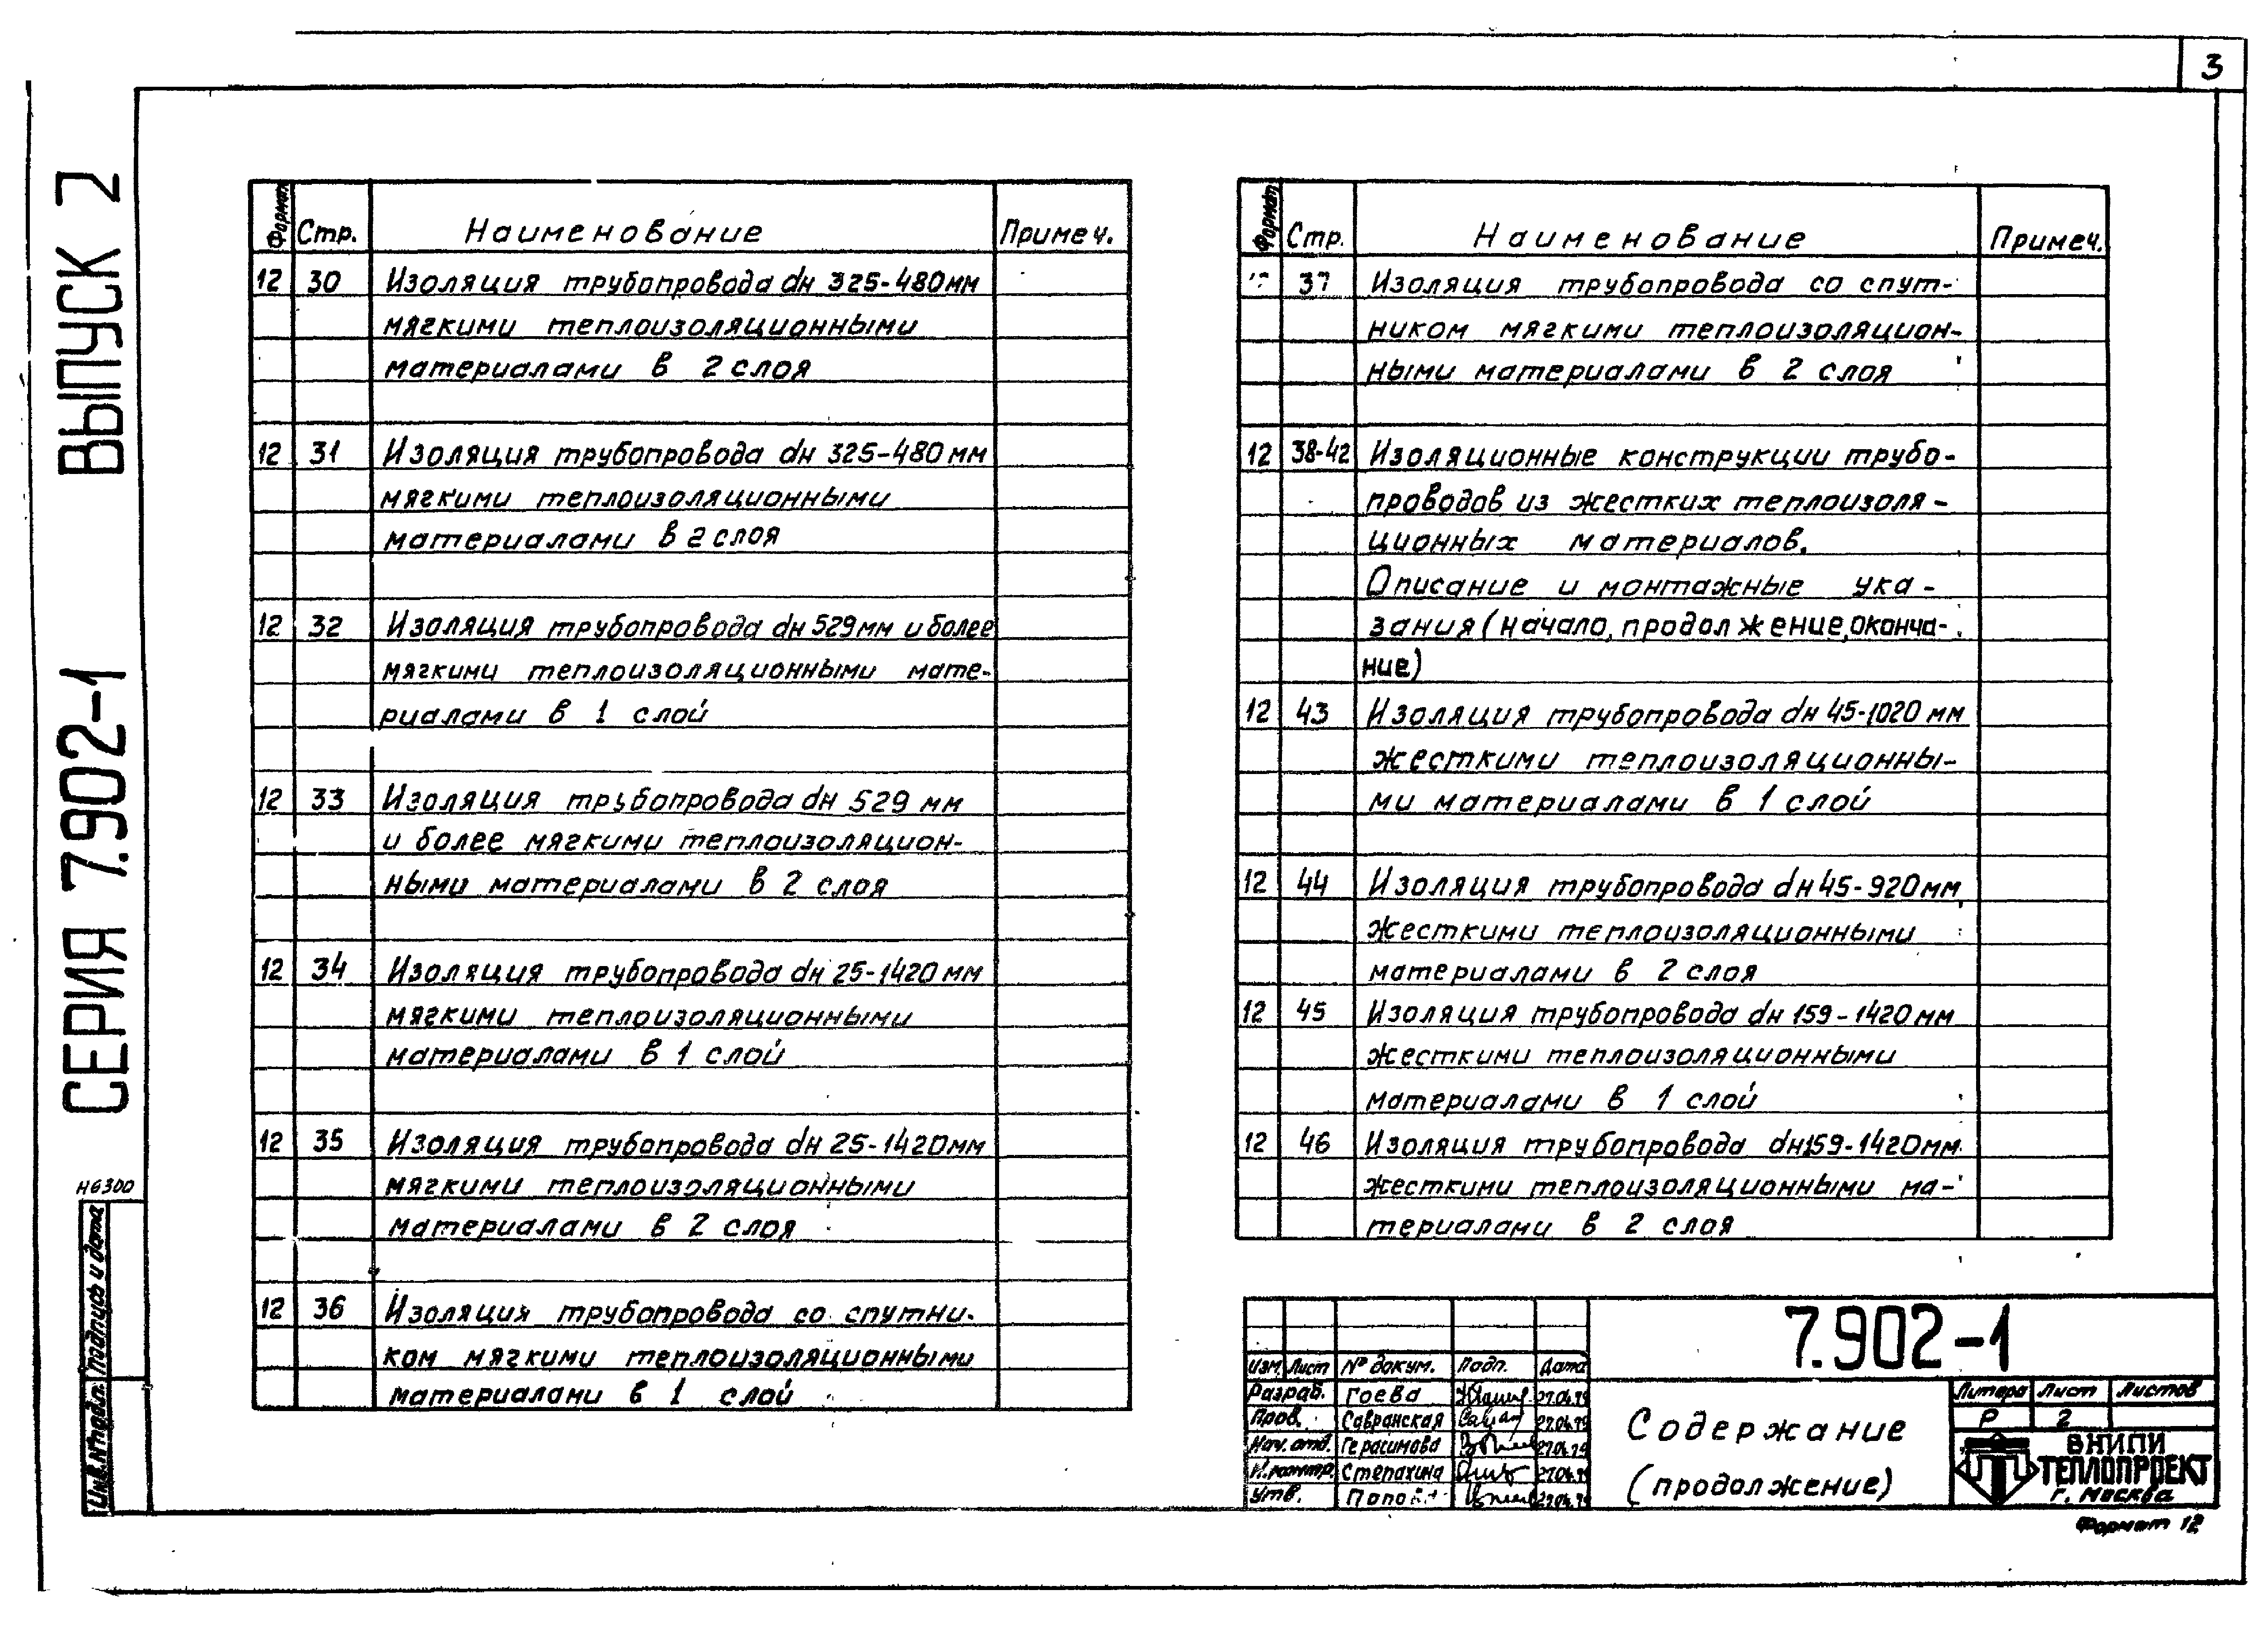 3
СЕРИЯ 7.902-1 ВЫПУСК 2
Формат Стр. Наименование Примеч.
12 30 Изоляция трубопровода dн 325-480мм
мягкими теплоизоляционными
материалами в 2 слоя
12 31 Изоляция трубопровода dн 325-480 мм
мягкими теплоизоляционными
материалами в 2 слоя
12 32 Изоляция трубопровода dн 529мм и более
мягкими теплоизоляционными мате-
риалами в 1 слой
12 33 Изоляция трубопровода dн 529 мм
и более мягкими теплоизоляцион-
ными материалами в 2 слоя
12 34 Изоляция трубопровода dн 25-1420 мм
мягкими теплоизоляционными
материалами в 1 слой
12 35 Изоляция трубопровода dн 25-1420мм
мягкими теплоизоляционными
материалами в 2 слоя
12 36 Изоляция трубопровода со спутни-
ком мягкими теплоизоляционными
материалами в 1 слой
Формат Стр. Наименование Примеч.
37 Изоляция трубопровода со спут-
ником мягкими теплоизоляцион-
ными материалами в 2 слоя
12 38-42 Изоляционные конструкции трубо-
проводов из жестких теплоизоля-
ционных материалов.
Описание и монтажные ука-
зания (начало, продолжение, оконча-
ние)
12 43 Изоляция трубопровода dн 45-1020 мм
жесткими теплоизоляционны-
ми материалами в 1 слой
12 44 Изоляция трубопровода dн 45-920мм
жесткими теплоизоляционными
материалами в 2 слоя
12 45 Изоляция трубопровода dн 159-1420 мм
жесткими теплоизоляционными
материалами в 1 слой
12 46 Изоляция трубопровода dн 159-1420мм
жесткими теплоизоляционными ма-
териалами в 2 слоя
Н6300
Инв.№подл. Подпись и дата
7.902-1
Изм. Лист № докум. Подп. Дата
Разраб. Гоева 27.04.79
Пров. Савранская 27.04.79
Нач. отд. Герасимова 27.04.79
Н. контр. Степахина 27.04.79
Утв. 27.04.79
Содержание
(продолжение)
Литера Лист Листов
Р 2
ВНИПИ
ТЕПЛОПРОЕКТ
г. Москва
Формат 12